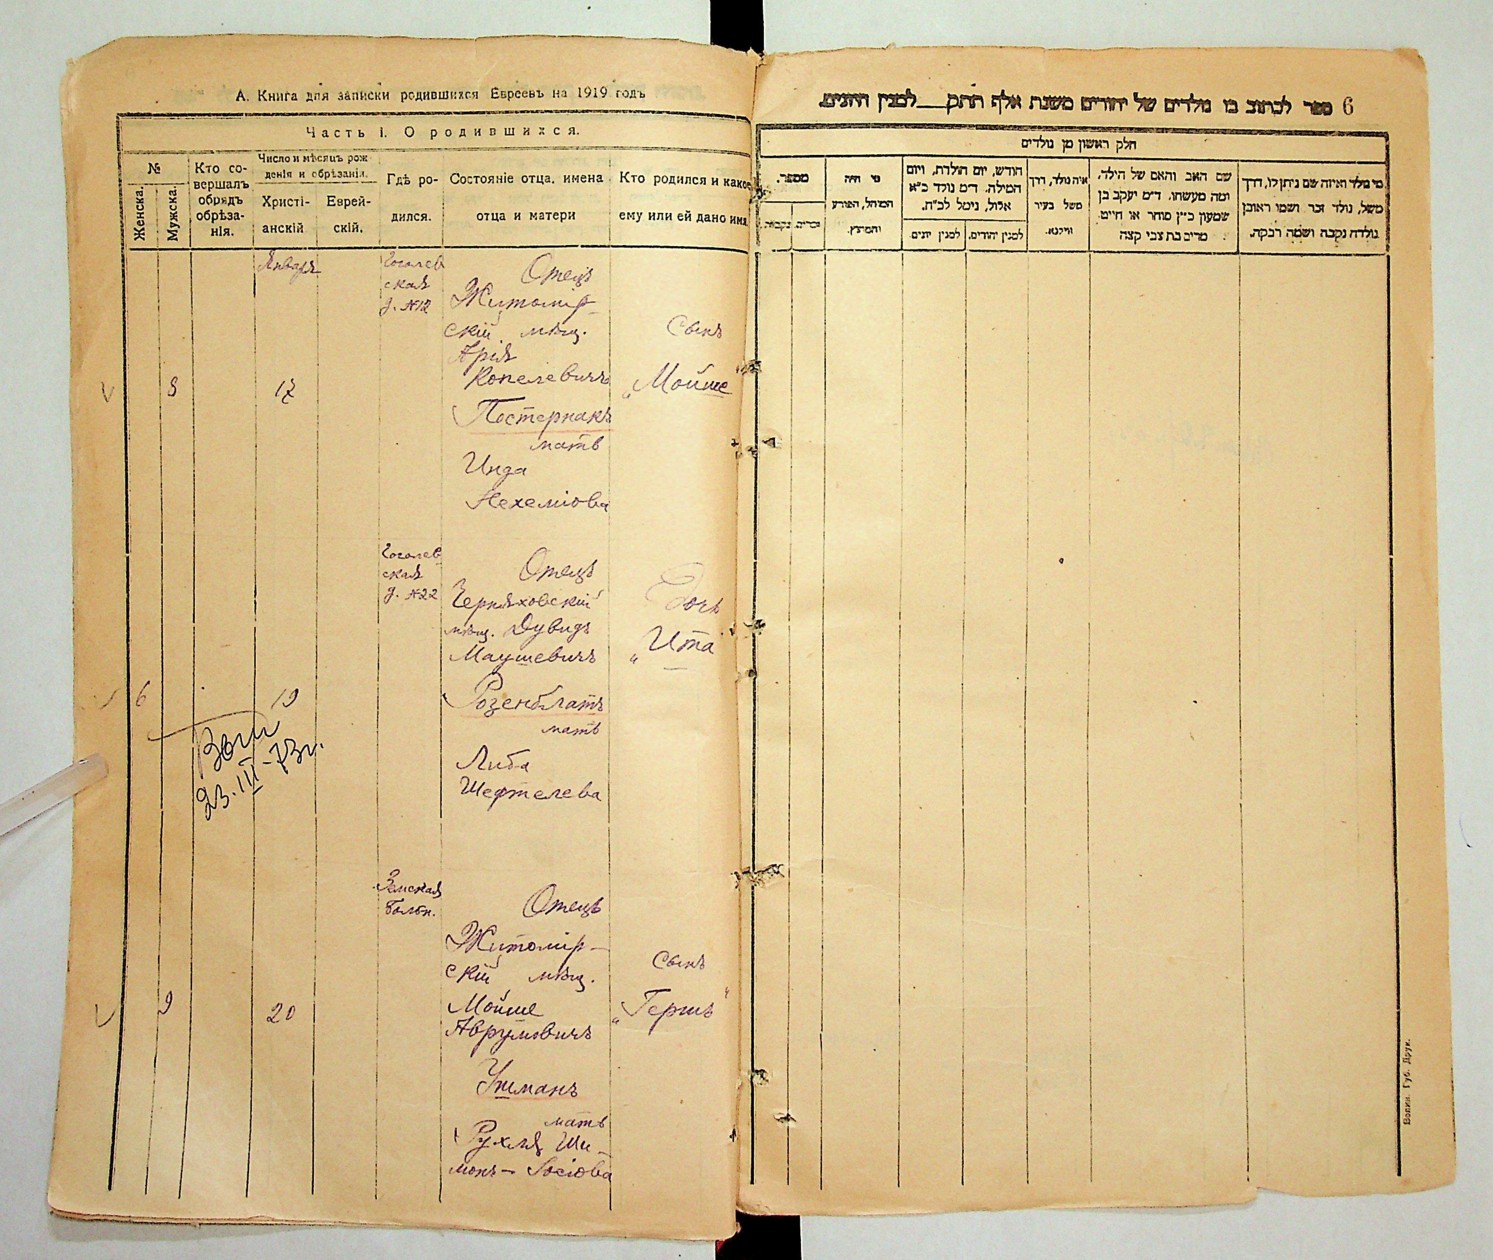 А. Книга для записки родившихся Евреевъ на 1919 годъ
Часть I. О родившихся.
№
Женска.
Мужска.
Кто со-
вершалъ
обрядъ
обрѣза-
нія.
Число и мѣсяцъ рож
денія и обрѣзанія.
Христі-
анскій
Еврей-
скій.
Гдѣ ро-
дился.
Состояніе отца, имена
отца и матери
Кто родился и какое
ему или ей дано имя.
Января
Гоголев
ская
д. №12
Отецъ
Житомір-
скій мѣщ.
Арія
Копелевичъ
Пастернакъ
мать
Инда
Нехеміова
8
17
Сынъ
„Мойше"
Гоголев
ская
д. №22
Отецъ
Черняховскій
мѣщ. Дувидъ
Маушевичъ
Розенблатъ
мать
Либа
Шефтелева
6
19
Дочь
„Ита"
23.III-73г.
Земская
больн.
Отецъ
Житомір-
скій мѣщ.
Мойше
Аврумовичъ
Ушманъ
мать
Рухля Ши-
монъ-Іосіова
9
20
Сынъ
„Гершъ"
6 ספר לכתוב בו נולדים של יהודים משנת אלף התתק___ למנין היונים.
חלק ראשון מן נולדים
מספר.
זכרים.
נקבות.
מי היה
המוהל, הפורע
והמוצץ.
חודש, יום הולדת, ויום
המילה. ד״מ נולד כ״א
אלול, נימל לכ״ח.
למנין יהודים.
למנין יונים
איה נולד, דרך
משל בעיר
ווילנא.
שם האב והאם של הילד.
ומה מעשהו. ד״מ יעקב בן
שמעון כ״ץ סוחר או חייט.
מרים בת צבי קצה
מי נולד ואיזה שם ניתן לו, דרך
משל, נולד זכר ושמו ראובן
נולדה נקבה ושמה רבקה.
Волын. Губ. Друк.